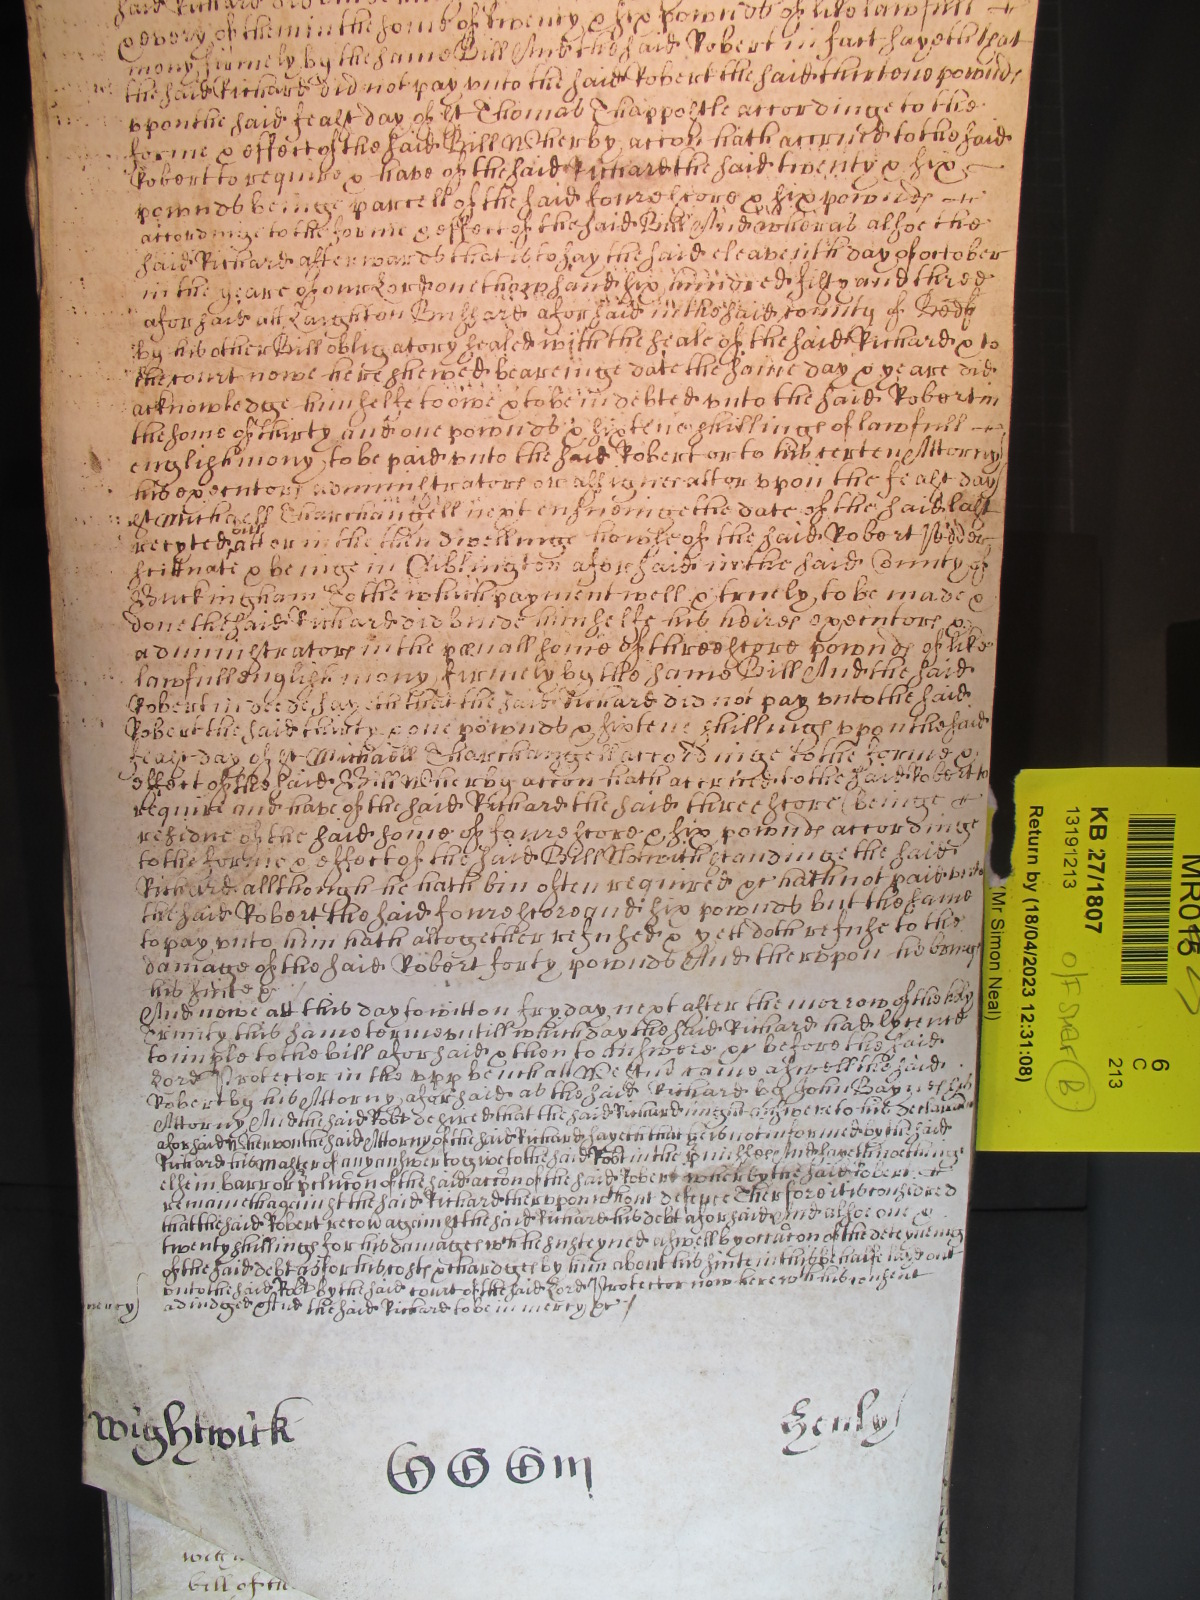 said Richard did
& every of them in the some of twenty & six pownds of like lawfull
mony firmely by the same Bill And the said Robert in fact sayeth that
the said Richard did not pay unto the said Robert the said thirtene pownds
upon the said feast day of St Thomas Thappostle accordinge to the
forme & effect of the said Bill Wherby accon hath accrued to the said
Robert to require & have of the said Richard the said twenty & six
pownds beinge parcell of the said fourescore & six pownds
accordinge to the forme & effect of the said Bill And wheras alsoe the
said Richard afterwards that is to say the said eleaventh day of october
in the yeare of our Lord one thowsand six hundred fifty and three
aforsaid att Laighton Bussard aforsaid in the said county of Bedf
by his other Bill obligatory sealed with the seale of the said Richard & to
the court nowe here shewed beareinge date the same day & yeare did
acknowledge himselfe to owe & to be indebted unto the said Robert in
the some of thirty and one pownds & sixtene shillings of lawfull
english mony to be paid unto the said Robert or to his certen Attorny
his executors administrators or assignes att or upon the feast day
St Michaell Tharchangell next ensueinge the date of the said last
recyted Bill att or in the then dwellinge howse of the said Robert
scituate & beinge in Cublington aforsaid in the said County of
Buckingham To the which payment well & truely to be made &
done the said Richard did binde himselfe his heires executors &
administrators in the penall some of threescore pownds of like
lawfull english mony firmely by the same Bill And the said
Robert in deede sayeth that the said Richard did not pay unto the said
Robert the said thirty & one pownds & sixtene shillings upon the said
feast day of St Michaell Tharchangell accordinge to the forme &
effect of the said Bill Wherby accon hath accrued to the said Robert to
require and have of the said Richard the said threescore beinge
residue of the said some of fourescore & six pownds accordinge
to the forme & effect of the said Bill Notwithstandinge the said
Richard allthough he hath bin often required &c hath not paid unto
the said Robert the said fourescore and six pownds but the same
to pay unto him hath altogether refused & yett doth refuse to the
damage of the said Robert forty pownds And therupon he brings
his suite &c
And nowe att this day to witt on fryday next after the morrow of the holy
Trinity this same terme untill which day the said Richard had lycence
to imple to the bill aforsaid & then to answere &c before the said
Lord Protector in the upp bench att Westm came aswell the said
Robert by his Attorny aforsaid as the said Richard by John his
Attorny And the said Robt desired that the said Richard might answere to his declaracon
aforsaid &c Therupon the said Attorny of the said Richard sayeth that he is not informed by the said
Richard his Master of any answer to give to the said Robt in the pmisses And sayeth nothinge
else in barr or pclucon of the said accon of the said Robert wherby the said Robert
remaineth against the said Richard therupon without defence Therfore it is considered
that the said Robert recover against the said Richard his debt aforsaid And alsoe one &
twenty shillings for his damages wch he susteyned aswell by occacon of the deteyneing
of the said debt as for his costs & chardges by him about his suite in this behalfe layd out
unto the said Robt by the said court of the said Lord Protector now here with his consent
adiudged And the said Richard to be in mercy &c
mercy
Wightwick
Henly
bill of the
MR016
KB 27/1807
13191213
Return by (18/04/2023 12:31:08)
(Mr Simon Neal)
6
C
213